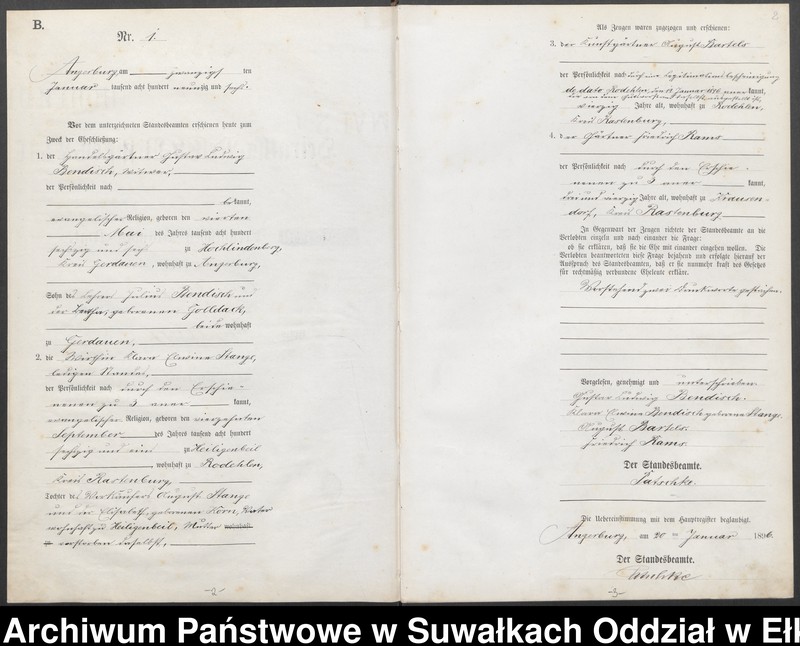 B.
Nr. 1.
Angerburg, am zwanzigsten
Januar tausend acht hundert neunzig und sechs.
Vor dem unterzeichneten Standesbeamten erschienen heute zum
Zweck der Eheschließung:
1. der Handelsgärtner Gustav Ludwig
Bendisch, Wittwer,
der Persönlichkeit nach
bekannt,
evangelischer Religion, geboren den vierten
Mai des Jahres tausend acht hundert
sechszig und sechs zu Hochlindenberg,
Kreis Gerdauen, wohnhaft zu Angerburg,
Sohn des Lehrers Julius Bendisch und
der Bertha, geborenen Golldack,
beide wohnhaft
zu Gerdauen,
2. die Wirthin Klara Elwine Stange,
ledigen Standes,
der Persönlichkeit nach durch den Erschie-
nenen zu 3 aner kannt,
evangelischer Religion, geboren den vierzehnten
September des Jahres tausend acht hundert
sechszig und eins zu Heiligenbeil
wohnhaft zu Rodehlen,
Kreis Rastenburg,
Tochter des August Stange
und der Elisabeth, geborenen Korn, Vater
wohnhaft zu Heiligenbeil, Mutter wohnhaft
verstorben daselbst,
-2-
2
Als Zeugen waren zugezogen und erschienen:
3. der Kunstgärtner August Bartels
der Persönlichkeit nach durch eine Legitimationsbescheinigung
de dato Rodehlen, den 12. Januar 1896 aner kannt,
vierzig Jahre alt, wohnhaft zu Rodehlen,
Kreis Rastenburg,
4. der Gärtner Friedrich Rams
der Persönlichkeit nach durch den Erschie-
nenen zu 3 aner kannt,
drei und vierzig Jahre alt, wohnhaft zu Krausen-
dorf, Kreis Rastenburg
In Gegenwart der Zeugen richtete der Standesbeamte an die
Verlobten einzeln und nach einander die Frage:
ob sie erklären, daß sie die Ehe mit einander eingehen wollen. Die
Verlobten beantworteten diese Frage bejahend und erfolgte hierauf der
Ausspruch des Standesbeamten, daß er sie nunmehr kraft des Gesetzes
für rechtmäßig verbundene Eheleute erkläre.
Vorstehend zwei Druckworte gestrichen.
Vorgelesen, genehmigt und unterschrieben
Gustav Ludwig Bendisch.
Klara Elwine Bendisch geborene Stange.
August Bartels.
Friedrich Rams.
Der Standesbeamte.
Die Uebereinstimmung mit dem Hauptregister beglaubigt.
Angerburg, am 20ten Januar 1896.
Der Standesbeamte.
-3-
Archiwum Państwowe w Suwałkach Oddział w Ełk